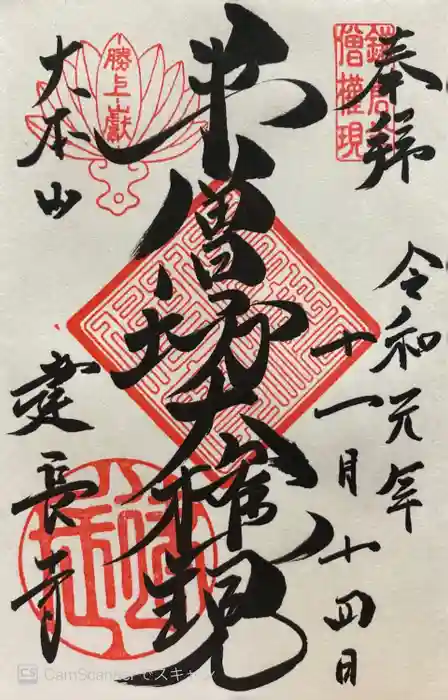 奉拝
令和元年
十一月十四日
半僧坊大権現
大本山
建長寺
鎌倉半
僧權現
勝上嶽
CS CamScannerでスキャン